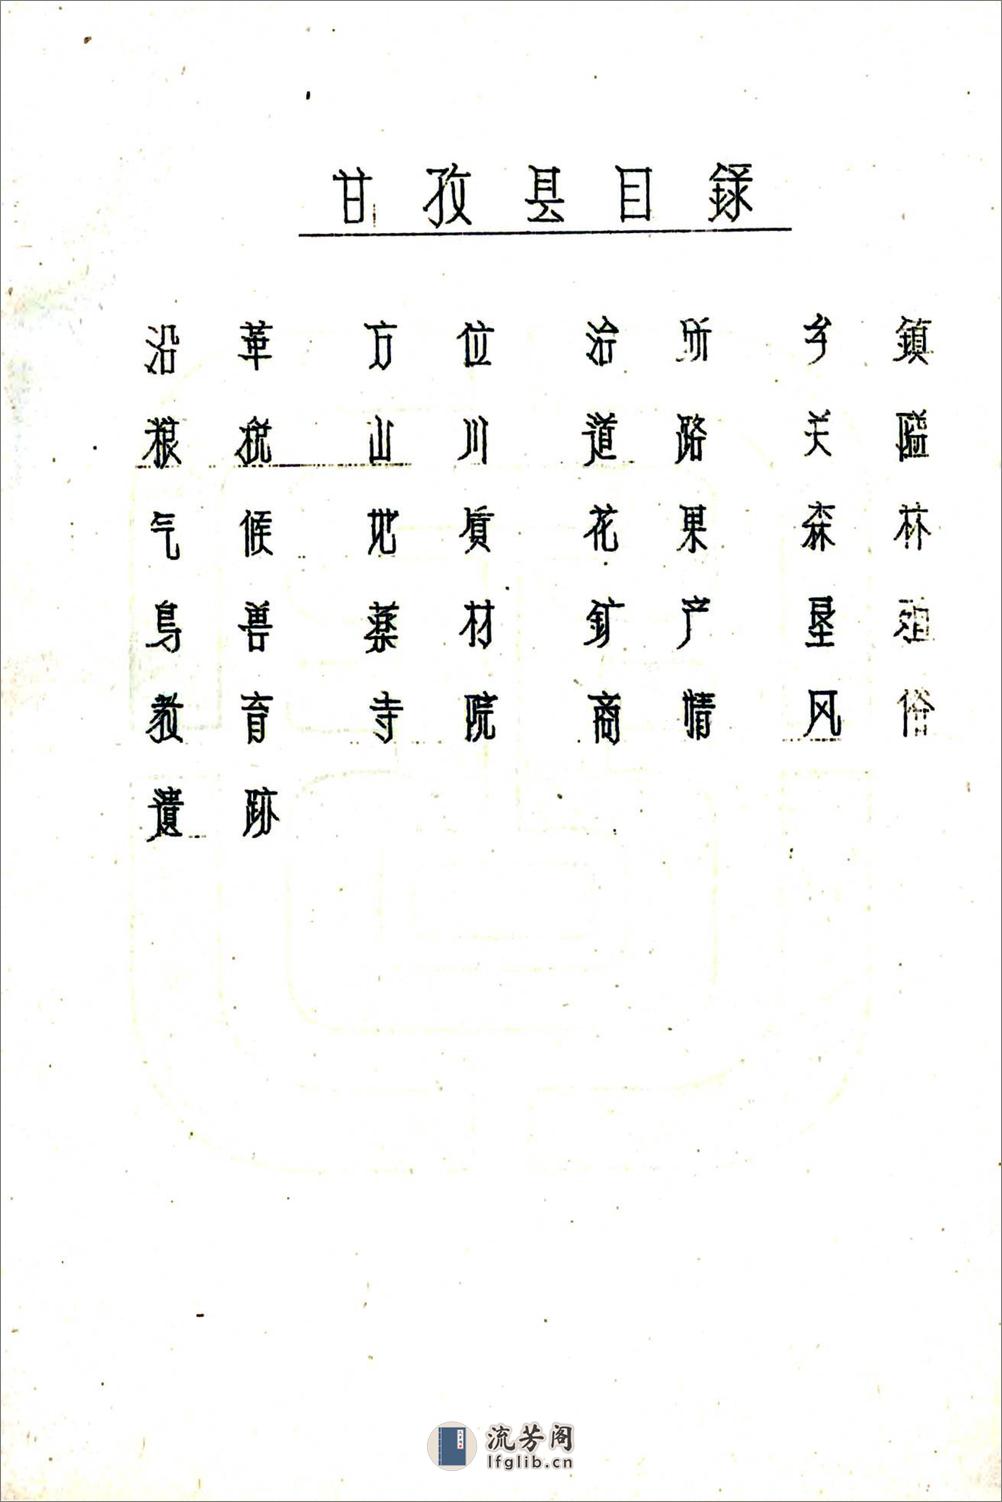 甘孜县目録
沿革 方位 治所 乡鎮
粮税 山川 道路 关隘
气候 地質 花果 森林
鳥兽 薬材 矿产 垦
教育 寺院 商情 风俗
遺跡
流芳阁
lfglib.cn